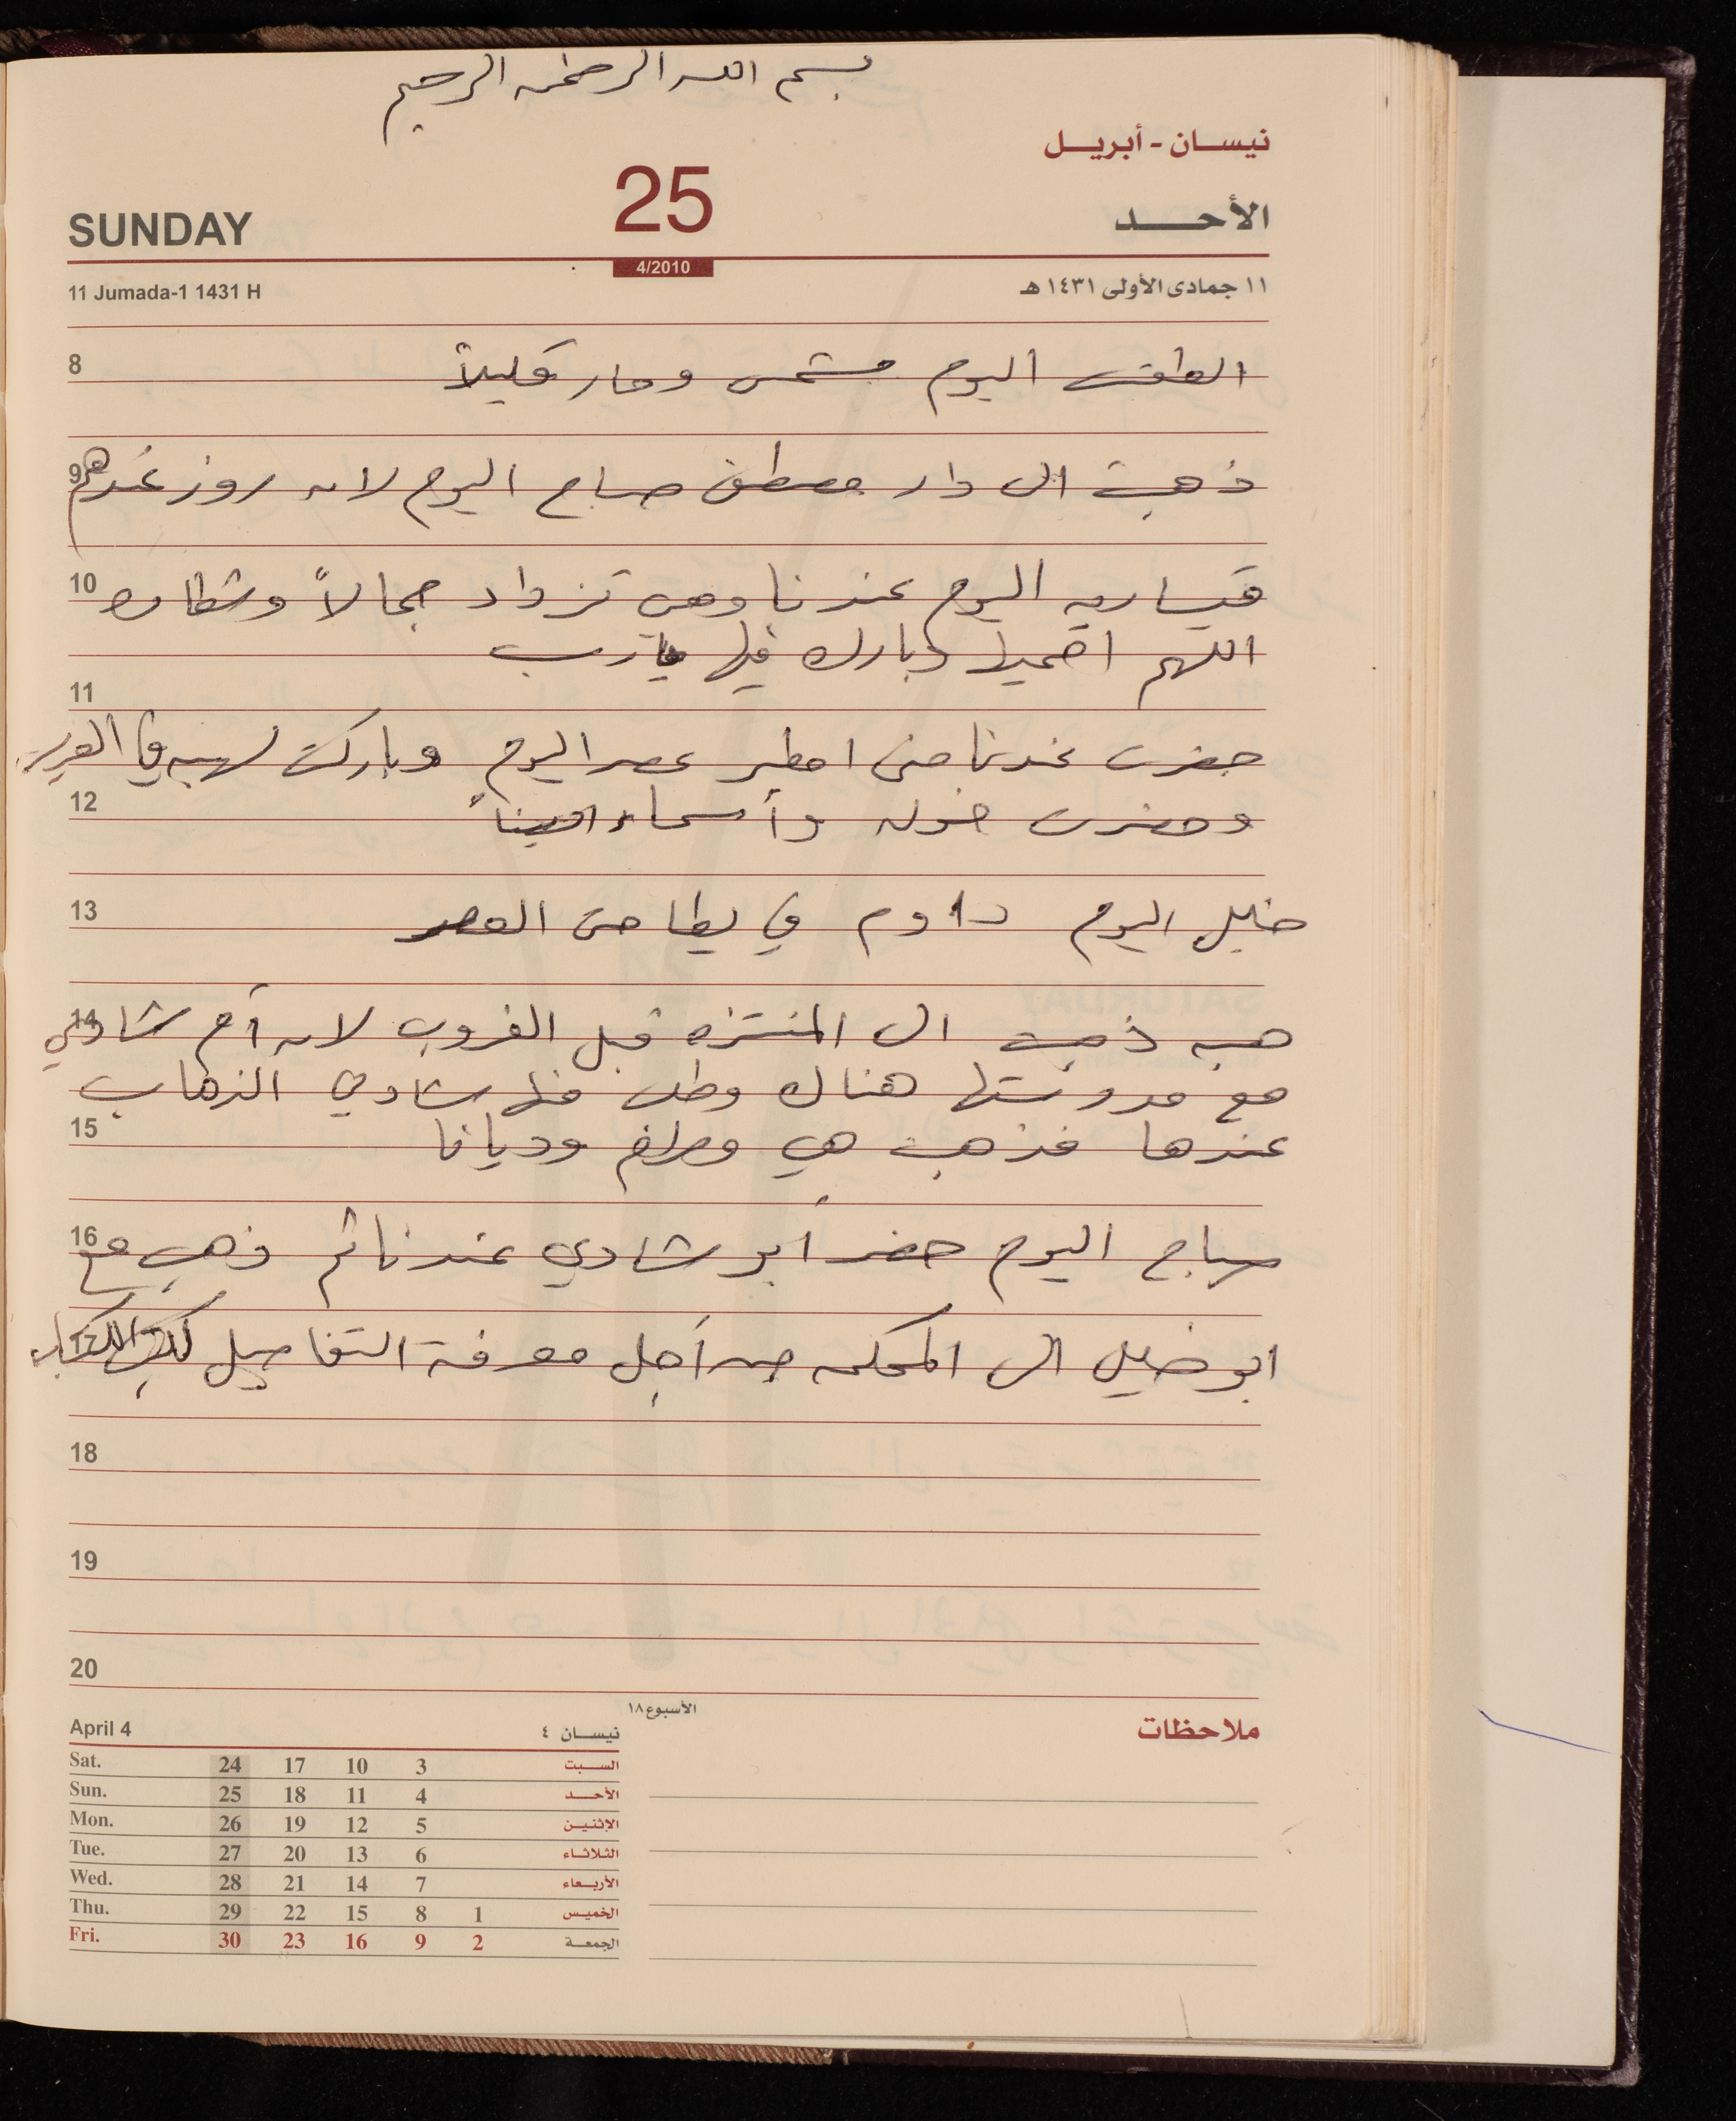 بسم الله الرحمن الرحيم
نيسان - أبريل
SUNDAY 25 الأحد
4/2010
11 Jumada-1 1431 H ١١ جمادى الأولى ١٤٣١ هـ
8 الطقس اليوم مشمس وحار قليلاً
9 ذهبت الى دار مصطفى صباح اليوم لان روز عندهم
10 اليوم عندنا وهي تزداد جمالاً وشطاره
اللهم احميها وبارك فيها يارب
11
حضرت عندنا منى عصر اليوم وباركت لهبه في
12
وحضرت خوله وأسماء
13 خليل اليوم داوم في يطا حتى العصر
14 هبه ذهبت الى المنتزه قبل الغروب لان أم شادي
مع مدرستها هناك وطلب منها شادي الذهاب
15
عندها فذهبت هي وديانا
16 صباح اليوم حضر أبو شادي عندنا ثم ذهب مع
17 ابو خليل الى المحكمه من أجل معرفة التفاصيل الكتاب
18
19
20
الأسبوع ١٨
ملاحظات
April 4 نيسان ٤
Sat. 24 17 10 3 السبت
Sun. 25 18 11 4 الأحد
Mon. 26 19 12 5 الإثنين
Tue. 27 20 13 6 الثلاثاء
Wed. 28 21 14 7 الأربعاء
Thu. 29 22 15 8 1 الخميس
Fri. 30 23 16 9 2 الجمعة